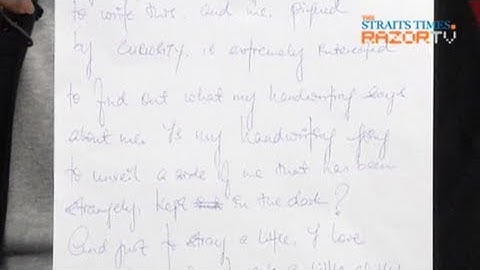 THE
STRAITS TIMES
RAZORTV
to write this. And me, piqued
by CURIOSITY, is extremely interested
to find out what my handwriting says
about me. Is my handwriting going
to unveil a side of me that has been
strangely, kept in the dark?
And just to stray a little, I love
a little